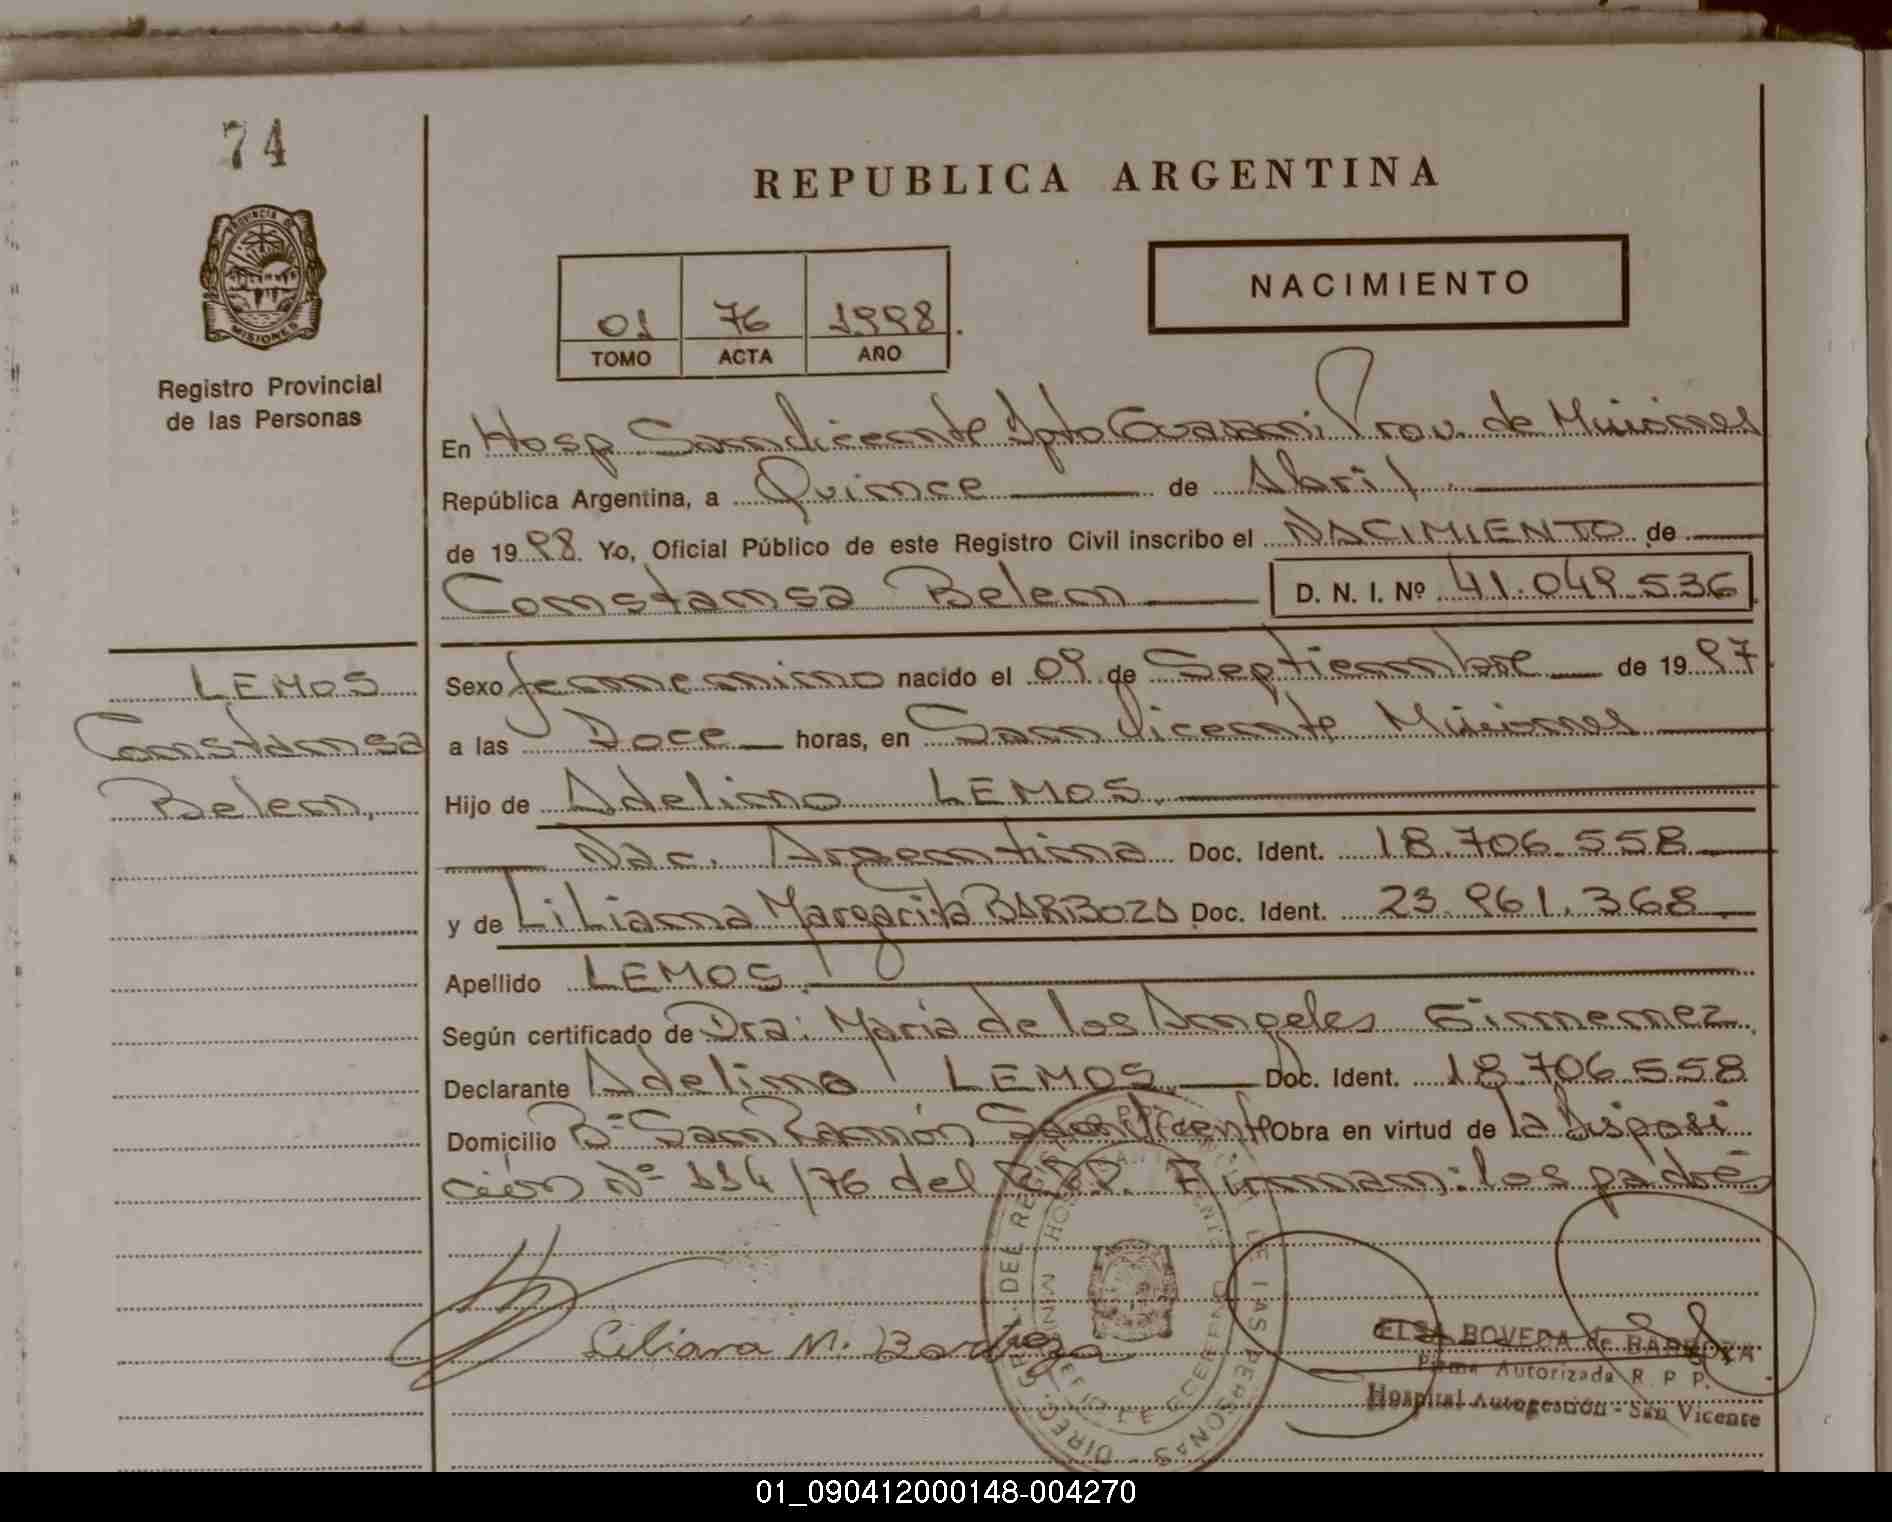 74
REPUBLICA ARGENTINA
PROVINCIA DE
MISIONES
Registro Provincial
de las Personas
NACIMIENTO
01 76 1998.
TOMO ACTA AÑO
En Hosp San Vicente Dpto Guarani Prov. de Misiones
República Argentina, a Quince de Abril
de 1998. Yo, Oficial Público de este Registro Civil inscribo el NACIMIENTO de
Constansa Belen D. N. I. Nº 41.049.536
LEMOS
Constansa
Belen,
Sexo femenino nacido el 09 de Septiembre de 1997
a las Doce horas, en San Vicente Misiones
Hijo de Adelino LEMOS.
Nac. Argentina Doc. Ident. 18.706.558
y de Liliana Margarita BARBOZA Doc. Ident. 23.961.368
Apellido LEMOS.
Según certificado de Dra: Maria de los Angeles Gimenez
Declarante Adelino LEMOS Doc. Ident. 18.706.558
Domicilio Bº San Ramón San Vicente Obra en virtud de la Disposi
ción Nº 114/76 del R.P.P. Firman: los padres
Liliana M. Barboza
ELSA BOVEDA de BARBOZA
Firma Autorizada R. P. P.
Hospital Autogestión - San Vicente
01_090412000148-004270